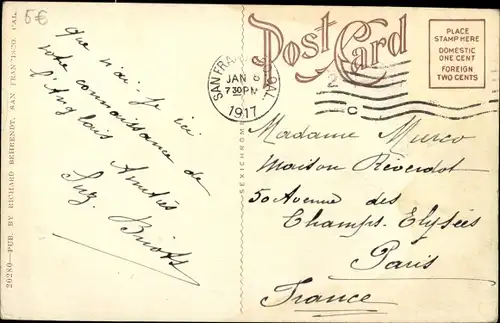 5€
Que n'ai-je ici
votre connaissance de
l'Anglais Amitiés
Suz.
20280—PUB. BY RICHARD BEHRENDT, SAN FRAN'ISCO, CAL.
Post Card
SAN FRAN CAL.
JAN 8
7 30 PM
1917
PLACE
STAMP HERE
DOMESTIC
ONE CENT
FOREIGN
TWO CENTS
C
SEXICHROME
Madame Murco
Maison Réverdot
50 Avenue des
Champs-Elysées
Paris
France